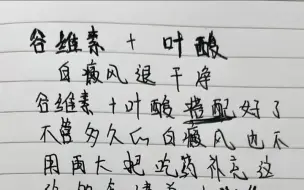 谷维素 + 叶酸
白癜风退干净
谷维素+叶酸搭配好了
不管多久的白癜风也不
用两大把吃药补充这